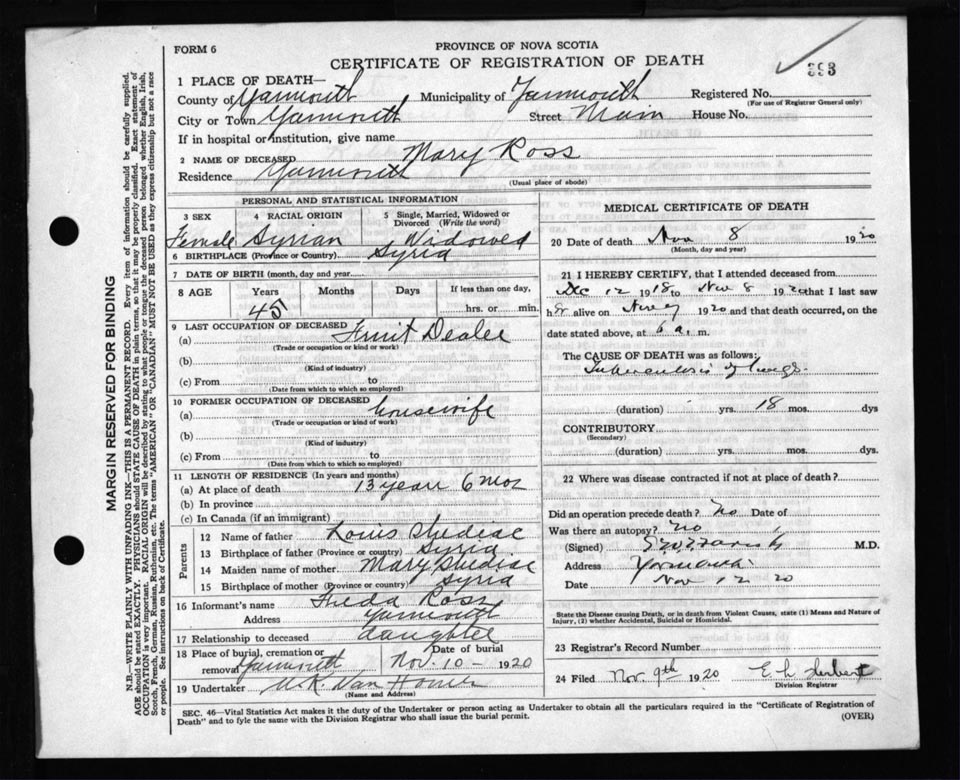 FORM 6
PROVINCE OF NOVA SCOTIA
CERTIFICATE OF REGISTRATION OF DEATH
393
1 PLACE OF DEATH—
County of Yarmouth Municipality of Yarmouth Registered No.
(For use of Registrar General only)
City or Town Yarmouth Street Main House No.
If in hospital or institution, give name
2 NAME OF DECEASED Mary Ross
Residence Yarmouth
(Usual place of abode)
PERSONAL AND STATISTICAL INFORMATION
3 SEX 4 RACIAL ORIGIN 5 Single, Married, Widowed or Divorced (Write the word)
Female Syrian Widowed
6 BIRTHPLACE (Province or Country) Syria
7 DATE OF BIRTH (month, day and year)
8 AGE Years Months Days If less than one day,
45 hrs. or min.
9 LAST OCCUPATION OF DECEASED
(a) Fruit Dealer
(Trade or occupation or kind or work)
(b)
(Kind of industry)
(c) From to
(Date from which to which so employed)
10 FORMER OCCUPATION OF DECEASED
(a) housewife
(Trade or occupation or kind of work)
(b)
(Kind of industry)
(c) From to
(Date from which to which so employed)
11 LENGTH OF RESIDENCE (In years and months)
(a) At place of death 13 years 6 mos
(b) In province
(c) In Canada (if an immigrant)
Parents
12 Name of father Louis Shediac
13 Birthplace of father (Province or country) Syria
14 Maiden name of mother Mary Shediac
15 Birthplace of mother (Province or country) Syria
16 Informant's name Freda Ross
Address Yarmouth
17 Relationship to deceased daughter
18 Place of burial, cremation or removal Yarmouth Date of burial Nov. 10 - 1920
19 Undertaker Van Horne
(Name and Address)
MEDICAL CERTIFICATE OF DEATH
20 Date of death Nov 8 1920
(Month, day and year)
21 I HEREBY CERTIFY, that I attended deceased from
Dec 12 1918 to Nov 8 1920 that I last saw
her alive on Nov 7 1920 and that death occurred, on
date stated above, at 6 a.m.
The CAUSE OF DEATH was as follows:
Tuberculosis of lungs.
(duration) yrs. 18 mos. dys
CONTRIBUTORY
(Secondary)
(duration) yrs. mos. dys.
22 Where was disease contracted if not at place of death?
Did an operation precede death? no Date of
Was there an autopsy? no
(Signed) M.D.
Address Yarmouth
Date Nov 12 20
State the Disease causing Death, or in death from Violent Causes, state (1) Means and Nature of
Injury, (2) whether Accidental, Suicidal or Homicidal.
23 Registrar's Record Number
24 Filed Nov. 9th 1920 E L
Division Registrar
SEC. 46—Vital Statistics Act makes it the duty of the Undertaker or person acting as Undertaker to obtain all the particulars required in the "Certificate of Registration of
Death" and to fyle the same with the Division Registrar who shall issue the burial permit.
(OVER)
MARGIN RESERVED FOR BINDING
N.B.—WRITE PLAINLY WITH UNFADING INK—THIS IS A PERMANENT RECORD. Every item of information should be carefully supplied.
AGE should be stated EXACTLY. PHYSICIANS should STATE CAUSE OF DEATH in plain terms, so that it may be properly classified. Exact statement of
OCCUPATION is very important. RACIAL ORIGIN will be described by stating to what people or tongue the deceased person belonged whether English, Irish,
Scotch, French, German, Russian, Ruthenian, etc. The terms "AMERICAN" OR "CANADIAN" MUST NOT BE USED as they express citizenship but not a race
or people. See instructions on back of Certificate.